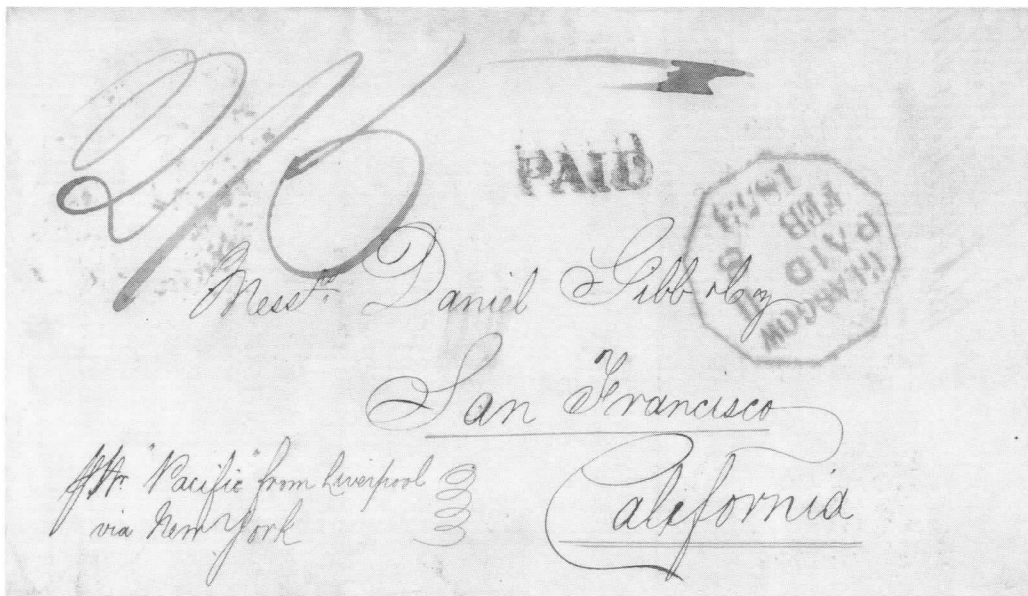 2/6
PAID
GLASGOW
PAID
FEB
Messrs Daniel Gibb & Coy
San Francisco
California
"Pacific" from Liverpool
via New York